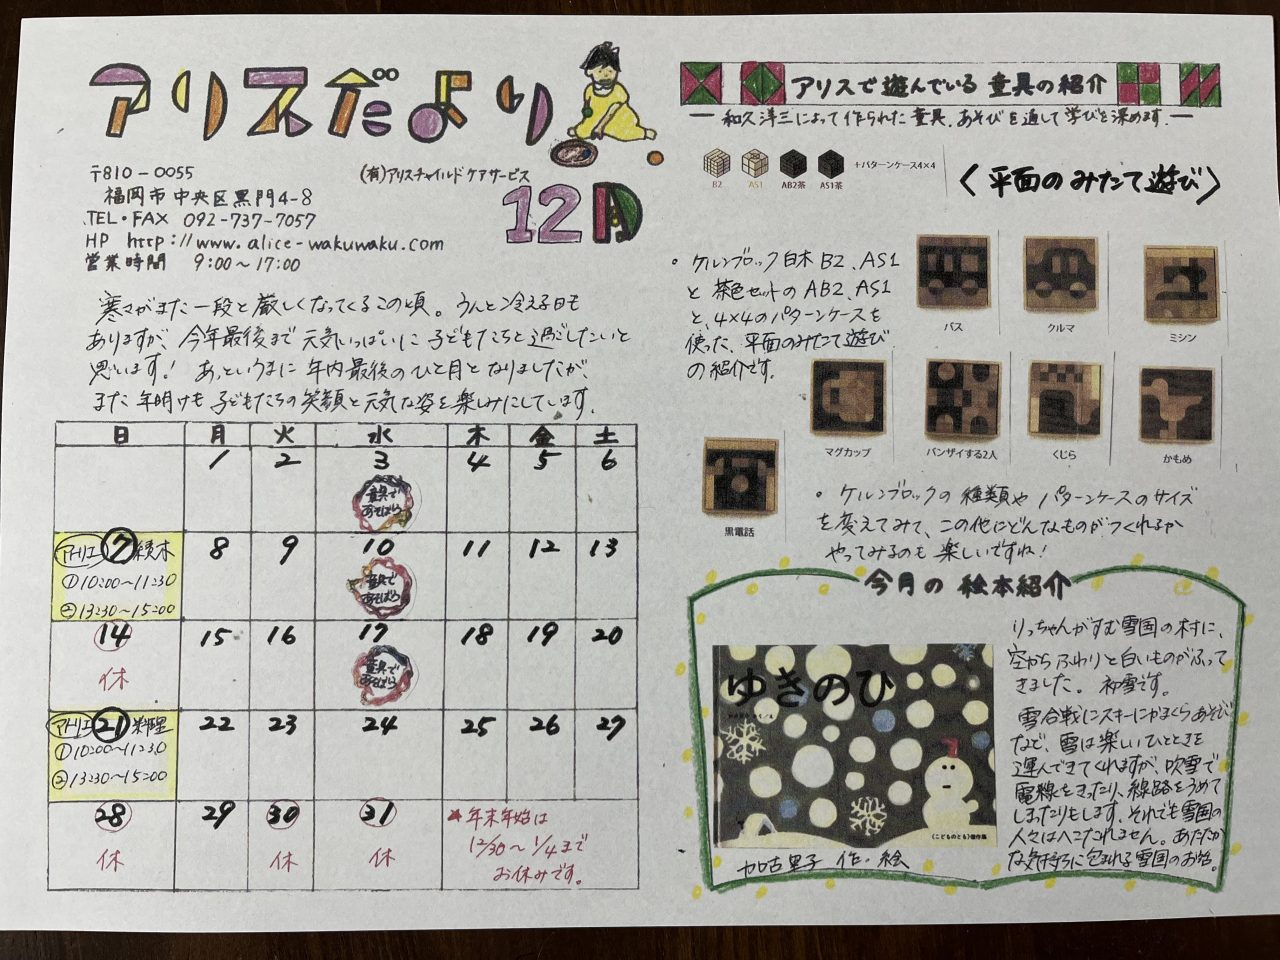 アリスだより
(有)アリスチャイルドケアサービス
12月
〒810-0055
福岡市中央区黒門4-8
TEL・FAX 092-737-7057
HP http://www.alice-wakuwaku.com
営業時間 9:00~17:00
寒さがまた一段と厳しくなってくるこの頃。うんと冷える日も
ありますが、今年最後まで元気いっぱいに子どもたちと過ごしたいと
思います! あっというまに年内最後のひと月となりましたが、
また年明けも子どもたちの笑顔と元気な姿を楽しみにしています。
日 月 火 水 木 金 土
1 2 3 4 5 6
童具であそぼう
アトリエ 7 積木 8 9 10 11 12 13
①10:00~11:30
②13:30~15:00
童具であそぼう
14 15 16 17 18 19 20
休
童具であそぼう
アトリエ 21 料理 22 23 24 25 26 27
①10:00~11:30
②13:30~15:00
28 29 30 31
休 休 休
*年末年始は
12/30~1/4まで
お休みです。
アリスで遊んでいる童具の紹介
― 和久洋三によって作られた童具。あそびを通して学びを深めます。―
B2 AS1 AB2茶 AS1茶 +パターンケース4×4
〈平面のみたて遊び〉
・ケルンブロック白木B2、AS1
と茶色セットのAB2、AS1
と、4×4のパターンケースを
使った、平面のみたて遊び
の紹介です。
バス クルマ ミシン
マグカップ バンザイする2人 くじら かもめ
黒電話
・ケルンブロックの種類やパターンケースのサイズ
を変えてみて、この他にどんなものがつくれるか
やってみるのも楽しいですね!
今月の絵本紹介
ゆきのひ
《こどものとも》傑作集
加古里子 作・絵
りっちゃんがすむ雪国の村に、
空からふわりと白いものがふって
きました。初雪です。
雪合戦にスキーにかまくらあそび
など、雪は楽しいひとときを
運んできてくれますが、吹雪で
電線をきったり、線路をうめて
しまったりもします。それでも雪国の
人々はへこたれません。あたたか
な気持ちに包まれる雪国のお話。